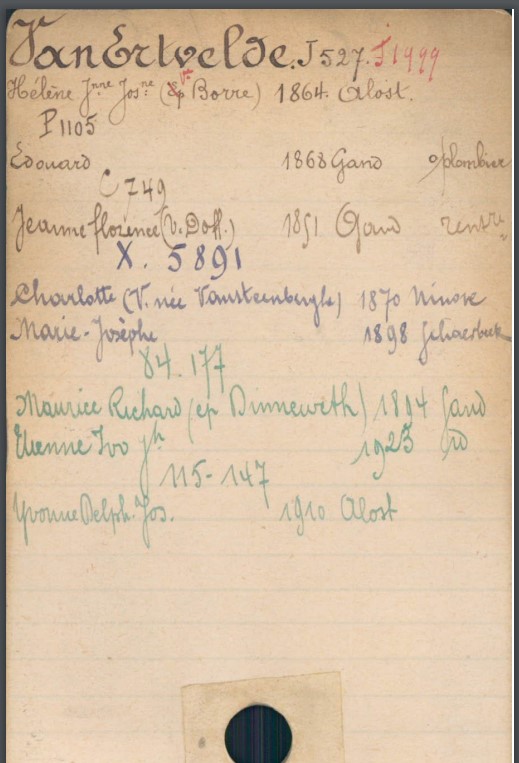 Van Ertvelde. J 527. J 1499
Hélène Jnne Josne (Ve Borre) 1864. Alost.
P 1105
Edouard 1868 Gand plombier
C 749
Jeanne florence (v. Doff.) 1851 Gand rentre
X. 5891
Charlotte (V. née Vansteenberghe) 1870 Ninove
Marie-Josèphe 1898 Schaerbeek
84.177
Maurice Richard (ép Dinneweth) 1894 Gand
Etienne Ivo Jh 1923 id
115-147
Yvonne Delph. Jos. 1910 Alost